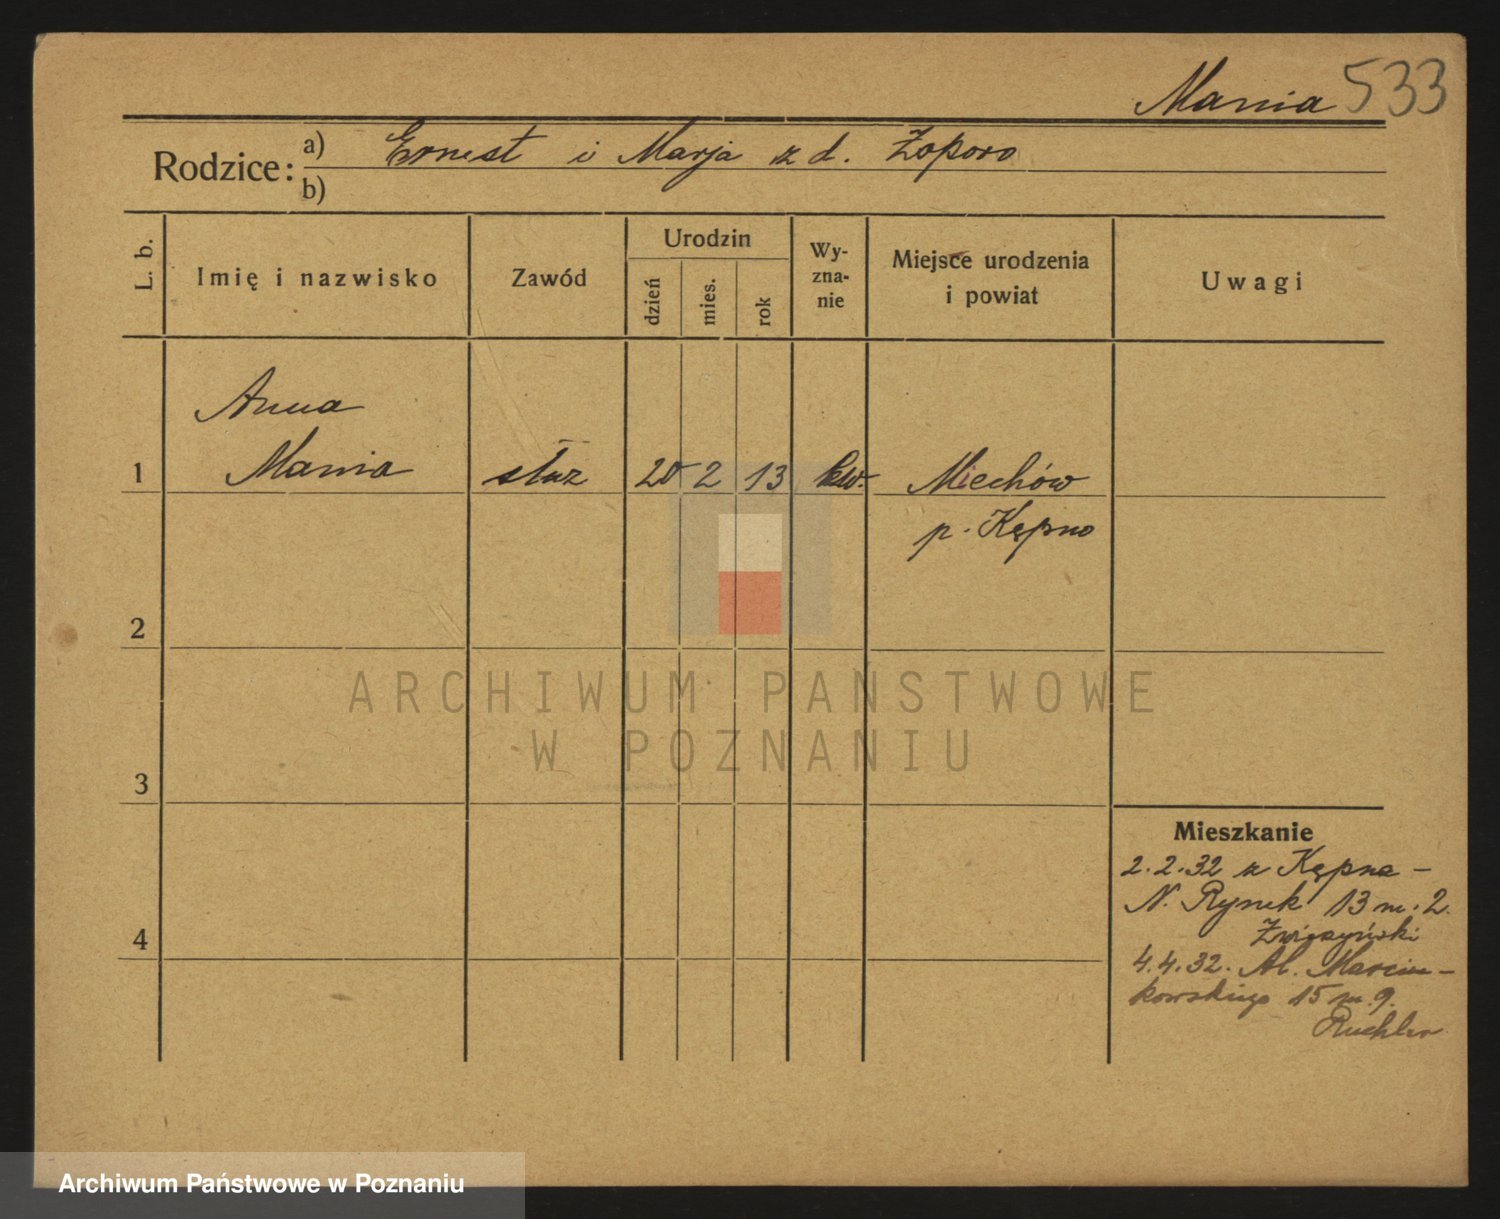 Mania 533
Rodzice: a) Ernest i Marja z d. Żoporo
b)
L. b.
Imię i nazwisko
Zawód
Urodzin
dzień
mies.
rok
Wy-
zna-
nie
Miejsce urodzenia
i powiat
Uwagi
Anna
1 Mania służ 20 2 13 Ew. Miechów
p. Kępno
2
3
4
Mieszkanie
2.2.32 z Kępna -
N. Rynek 13 m. 2.
4.4.32. Al. Marcin-
kowskiego 15 m. 9.
ARCHIWUM PAŃSTWOWE
W POZNANIU
Archiwum Państwowe w Poznaniu